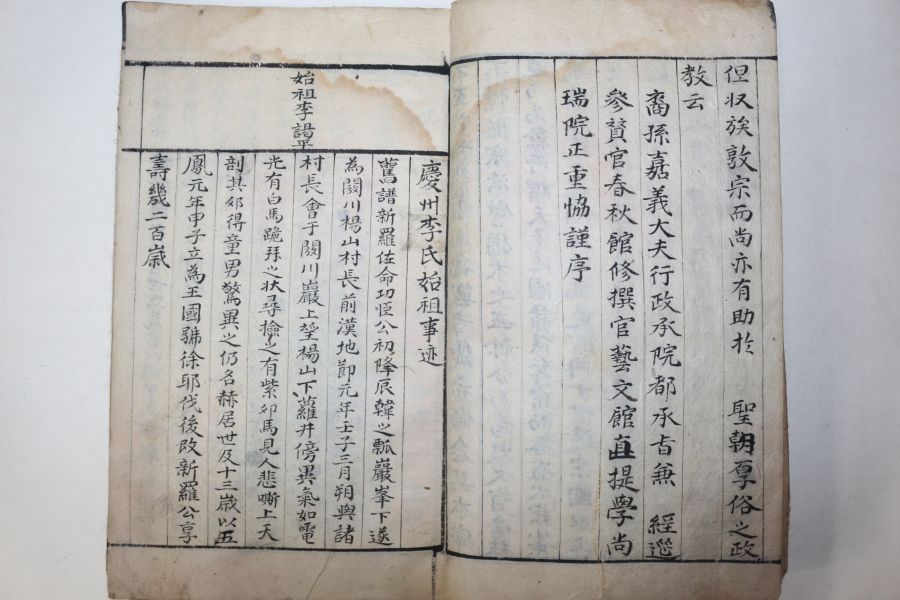 但収族敦宗而尚亦有助於 聖朝厚俗之政
教云
裔孫嘉義大夫行政承院都承旨兼 經遆
參賛官春秋館修撰官藝文館直提學尚
瑞院正重恊謹序
慶州李氏始祖事迹
始祖李謁平
舊譜新羅佐命功臣公初降辰韓之瓢巖峯下遂
為閼川楊山村長前漢地節元年壬子三月朔與諸
村長會于閼川巖上望楊山下蘿井傍異氣如電
光有白馬跪拜之状尋撿之有紫卵馬見人悲嘶上天
剖其卵得童男驚異之仍名赫居世及十三歳以五
鳳元年甲子立為王國號徐耶伐後改新羅公享
壽幾二百歳